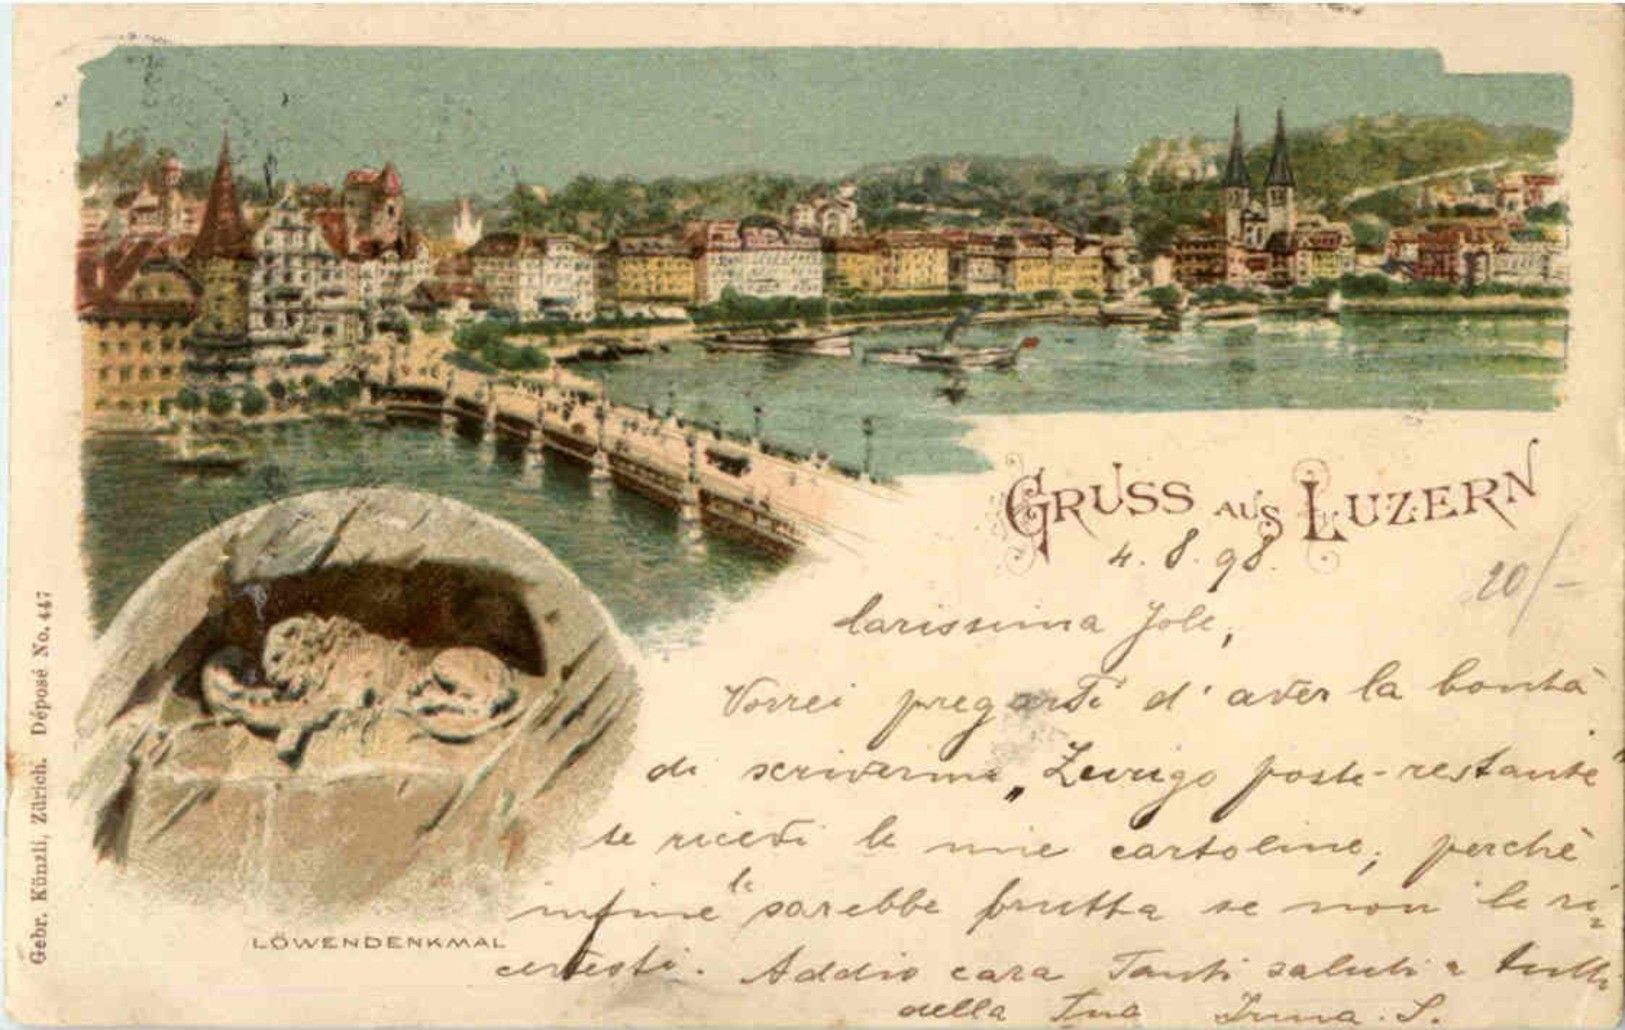 GRUSS AUS LUZERN
4. 8. 98.
20/-
Carissima Jole,
Vorrei pregarti d' aver la bontà
di scrivermi „Zurigo poste-restante"
se ricevi le mie cartoline, perchè
infine la sarebbe brutta se non le ri-
cevesti. Addio cara Tanti saluti a tutti
della Tua Irma. S.
LÖWENDENKMAL
Gebr. Künzli, Zürich. Déposé No. 447